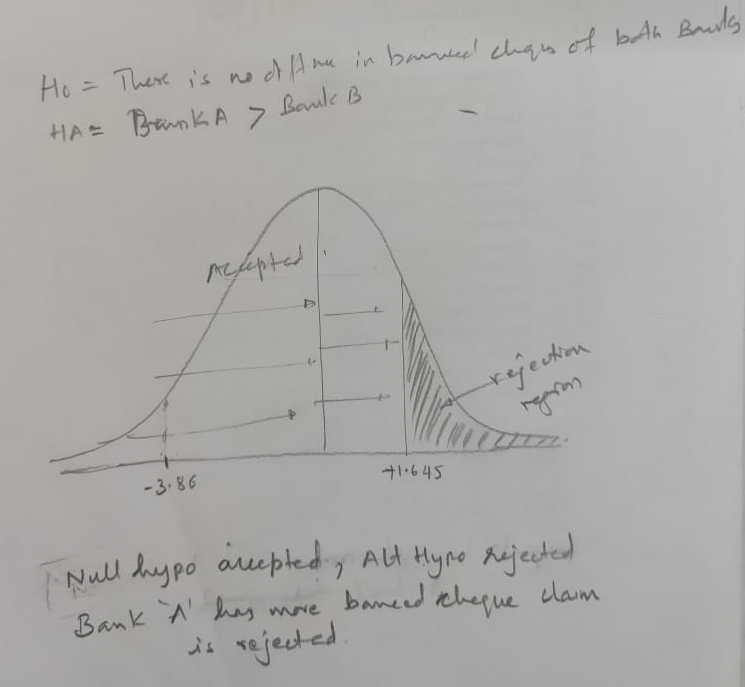 H0 = There is no in bounced cheqs of both Banks
HA = Bank A > Bank B
Accepted
rejection
region
-3.86
+1.645
Null hypo accepted, Alt Hypo rejected
Bank 'A' has more bounced cheque claim
is rejected.